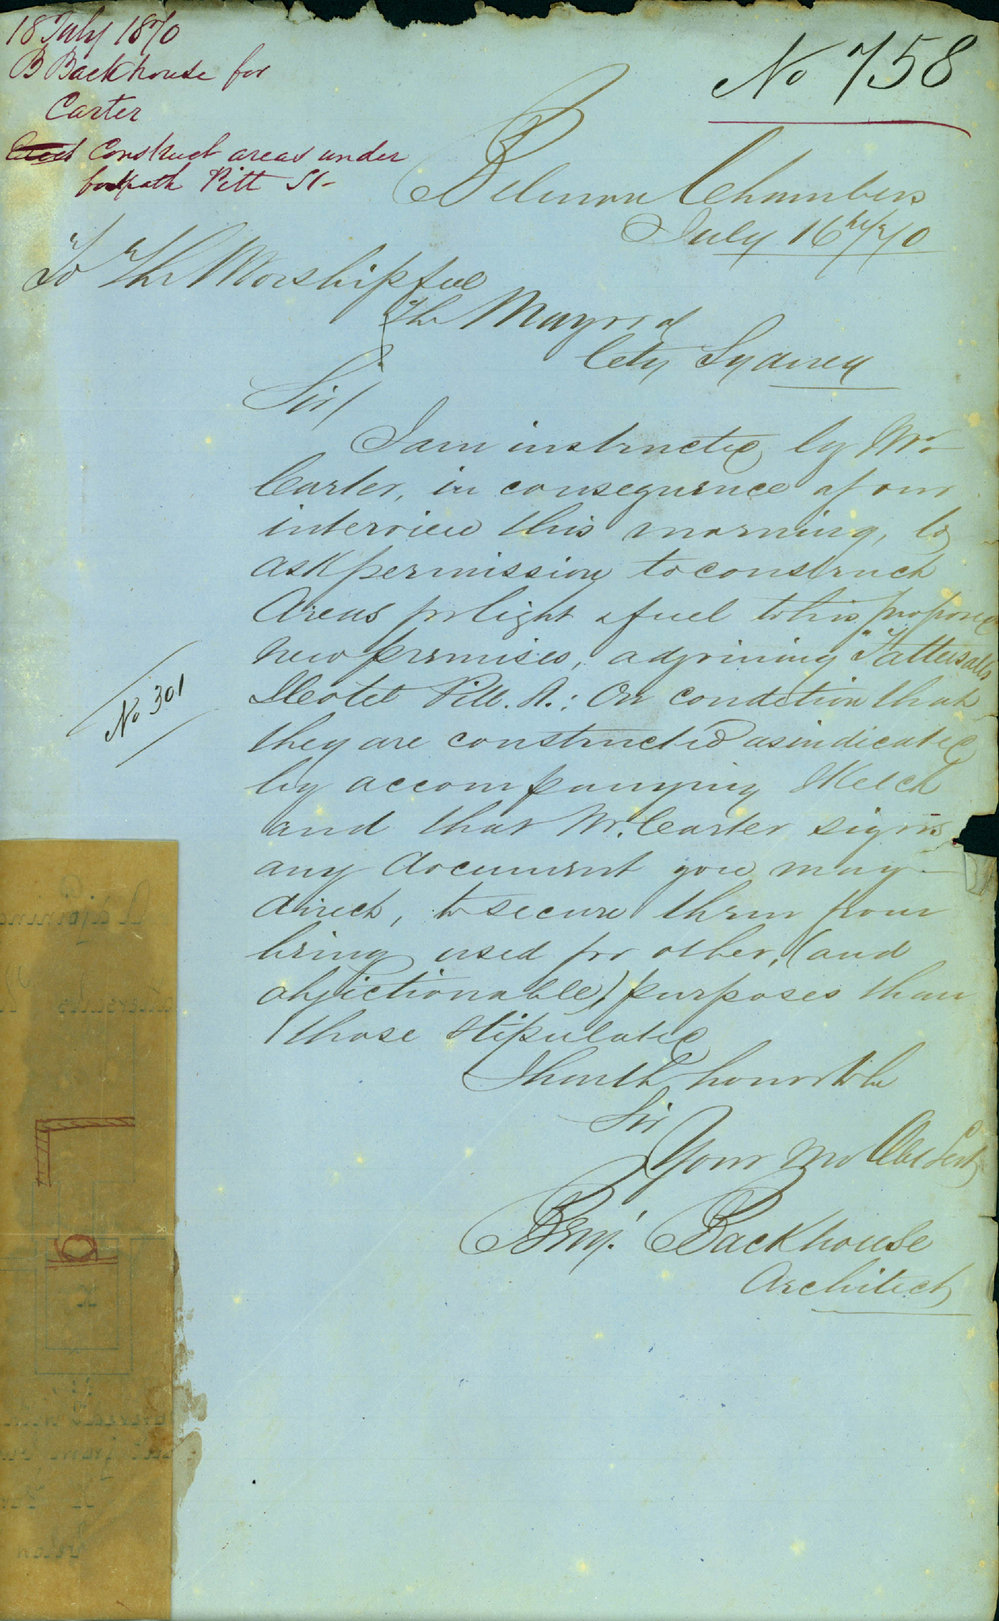 18 July 1870
B Backhouse for
Carter
Construct areas under
footpath Pitt St-
No 758
Chambers
July 16th/70
To The Worshipful
The Mayor of
City Sydney
Sir/
I am instructed by Mr
Carter, in consequence of our
interview this morning, to
ask permission to construct
Areas for light & fuel to his proposed
new premises, adjoining "Tattersalls
Hotel Pitt. St.: On condition that
they are constructed as indicated
by accompanying Sketch
and that Mr. Carter signs
any document you may
direct, to secure them from
being used for other, (and
objectionable) purposes than
those stipulated
No 301
I have the honor to be
Sir
Your Mo Obt Servt
Benj. Backhouse
Architect
Adjoining